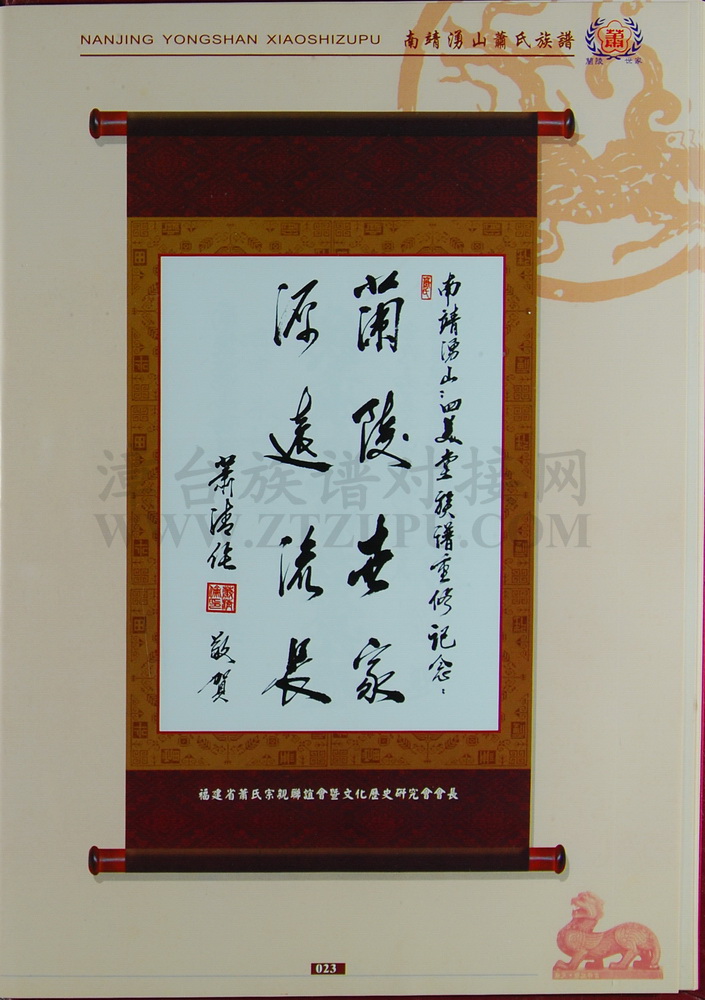 NANJING YONGSHAN XIAOSHIZUPU 南靖湧山蕭氏族譜
蕭
蘭陵 世家
南靖湧山四美堂族譜重修記念
蘭陵世家
源遠流長
蕭清
敬賀
福建省蕭氏宗親聯誼會暨文化歷史研究會會長
漳台族谱对接网
WWW.ZTZUPU.COM
023